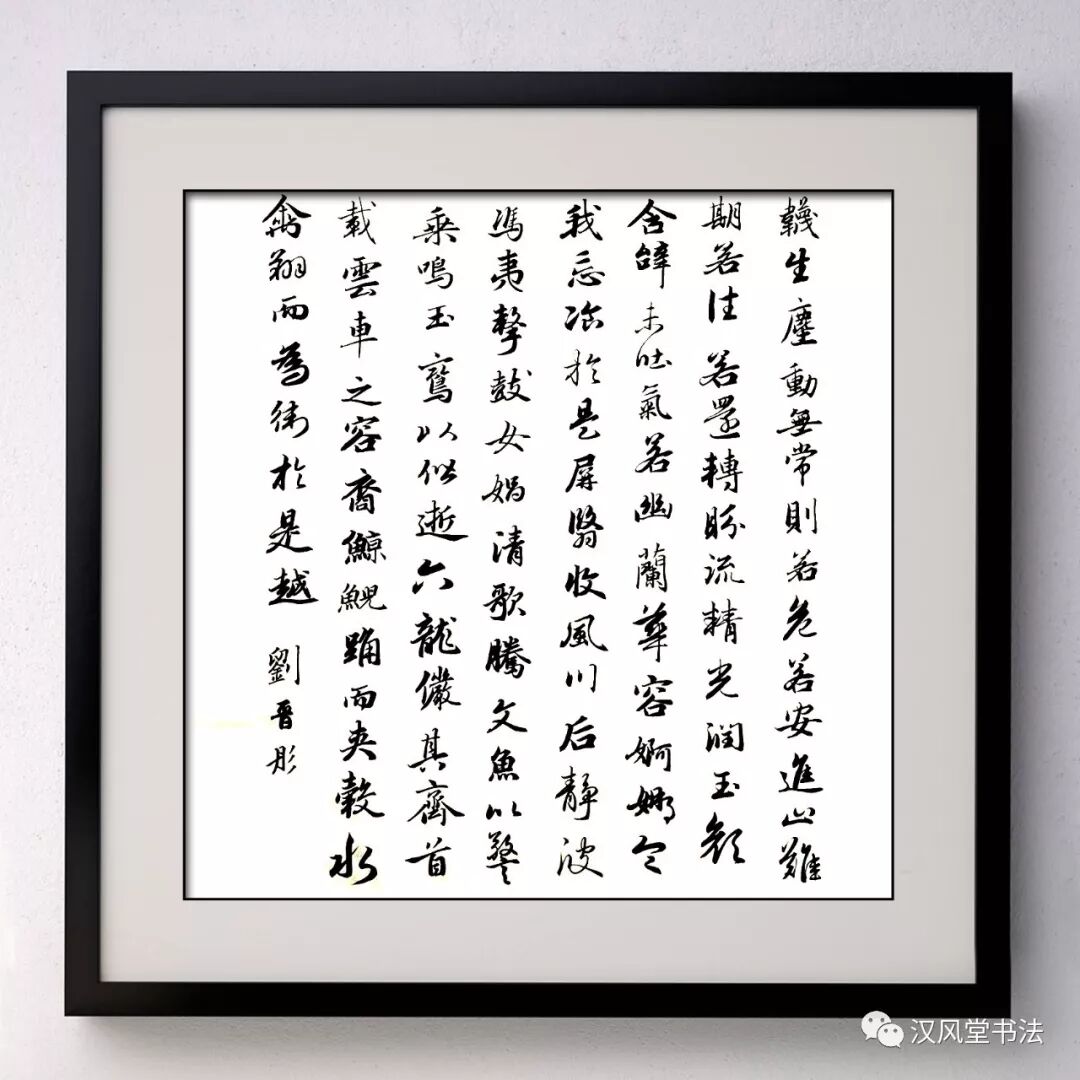 韈生塵動無常則若危若安進止難
期若往若還轉眄流精光潤玉顏
含辭未吐氣若幽蘭華容婀娜令
我忘飡於是屏翳收風川后靜波
馮夷擊鼓女媧清歌騰文魚以警
乘鳴玉鸞以偕逝六龍儼其齊首
載雲車之容裔鯨鯢踊而夾轂水
禽翔而為衛於是越 劉晉彤
汉风堂书法